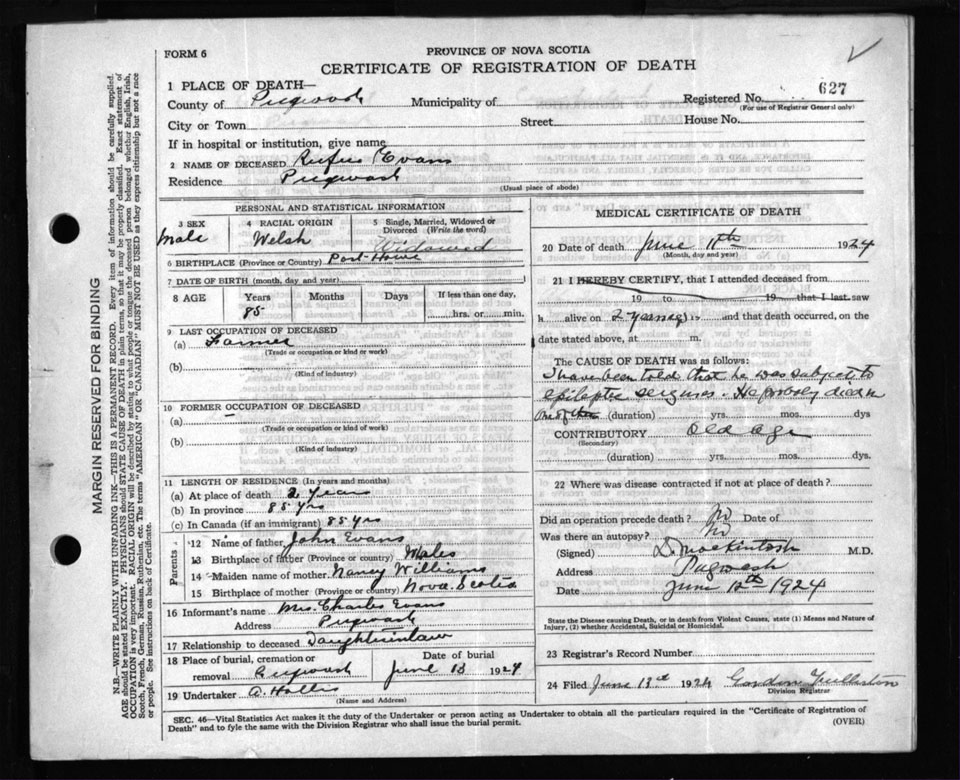 FORM 6
PROVINCE OF NOVA SCOTIA
CERTIFICATE OF REGISTRATION OF DEATH
1 PLACE OF DEATH—
County of Pugwash Municipality of Registered No. 627
(For use of Registrar General only)
City or Town Street House No.
If in hospital or institution, give name
2 NAME OF DECEASED Rufus Evans
Residence Pugwash
(Usual place of abode)
PERSONAL AND STATISTICAL INFORMATION
3 SEX 4 RACIAL ORIGIN 5 Single, Married, Widowed or Divorced (Write the word)
Male Welsh Widowed
6 BIRTHPLACE (Province or Country) Port Howe
7 DATE OF BIRTH (month, day and year)
8 AGE Years Months Days If less than one day,
85 hrs. or min.
9 LAST OCCUPATION OF DECEASED
(a) Farmer
(Trade or occupation or kind or work)
(b)
(Kind of industry)
10 FORMER OCCUPATION OF DECEASED
(a) –
(Trade or occupation or kind of work)
(b)
(Kind of industry)
11 LENGTH OF RESIDENCE (In years and months)
(a) At place of death 2 years
(b) In province 85 yrs
(c) In Canada (if an immigrant) 85 yrs
Parents
12 Name of father John Evans
13 Birthplace of father (Province or Country) Wales
14 Maiden name of mother Nancy Williams
15 Birthplace of mother (Province or country) Nova Scotia
16 Informant's name Mrs. Charles Evans
Address Pugwash
17 Relationship to deceased Daughterinlaw
18 Place of burial, cremation or removal Pugwash Date of burial June 13 1924
19 Undertaker A. Hollis
(Name and Address)
MEDICAL CERTIFICATE OF DEATH
20 Date of death June 11th 1924
(Month, day and year)
21 I HEREBY CERTIFY, that I attended deceased from
19 to 19 that I last saw
h alive on 2 years ago and that death occurred, on the
date stated above, at m.
The CAUSE OF DEATH was as follows:
I have been told that he was subject to
epileptic seizures. He probably died in
one of them (duration) yrs. mos. dys
CONTRIBUTORY Old age
(Secondary)
(duration) yrs. mos. dys.
22 Where was disease contracted if not at place of death?
Did an operation precede death? No Date of
Was there an autopsy? No
(Signed) D. MacKintosh M.D.
Address Pugwash
Date June 12th 1924
State the Disease causing Death, or in death from Violent Causes, state (1) Means and Nature of Injury, (2) whether Accidental, Suicidal or Homicidal.
23 Registrar's Record Number
24 Filed June 13th 1924 Gordon
Division Registrar
SEC. 46—Vital Statistics Act makes it the duty of the Undertaker or person acting as Undertaker to obtain all the particulars required in the "Certificate of Registration of
Death" and to fyle the same with the Division Registrar who shall issue the burial permit. (OVER)
MARGIN RESERVED FOR BINDING
N.B.—WRITE PLAINLY WITH UNFADING INK—THIS IS A PERMANENT RECORD. Every item of information should be carefully supplied.
AGE should be stated EXACTLY. PHYSICIANS should STATE CAUSE OF DEATH in plain terms, so that it may be properly classified. Exact statement of
OCCUPATION is very important. RACIAL ORIGIN will be described by stating to what people or tongue the deceased person belonged whether English, Irish,
Scotch, French, German, Russian, Ruthenian, etc. The terms "AMERICAN" OR "CANADIAN" MUST NOT BE USED as they express citizenship but not a race
or people. See instructions on back of Certificate.